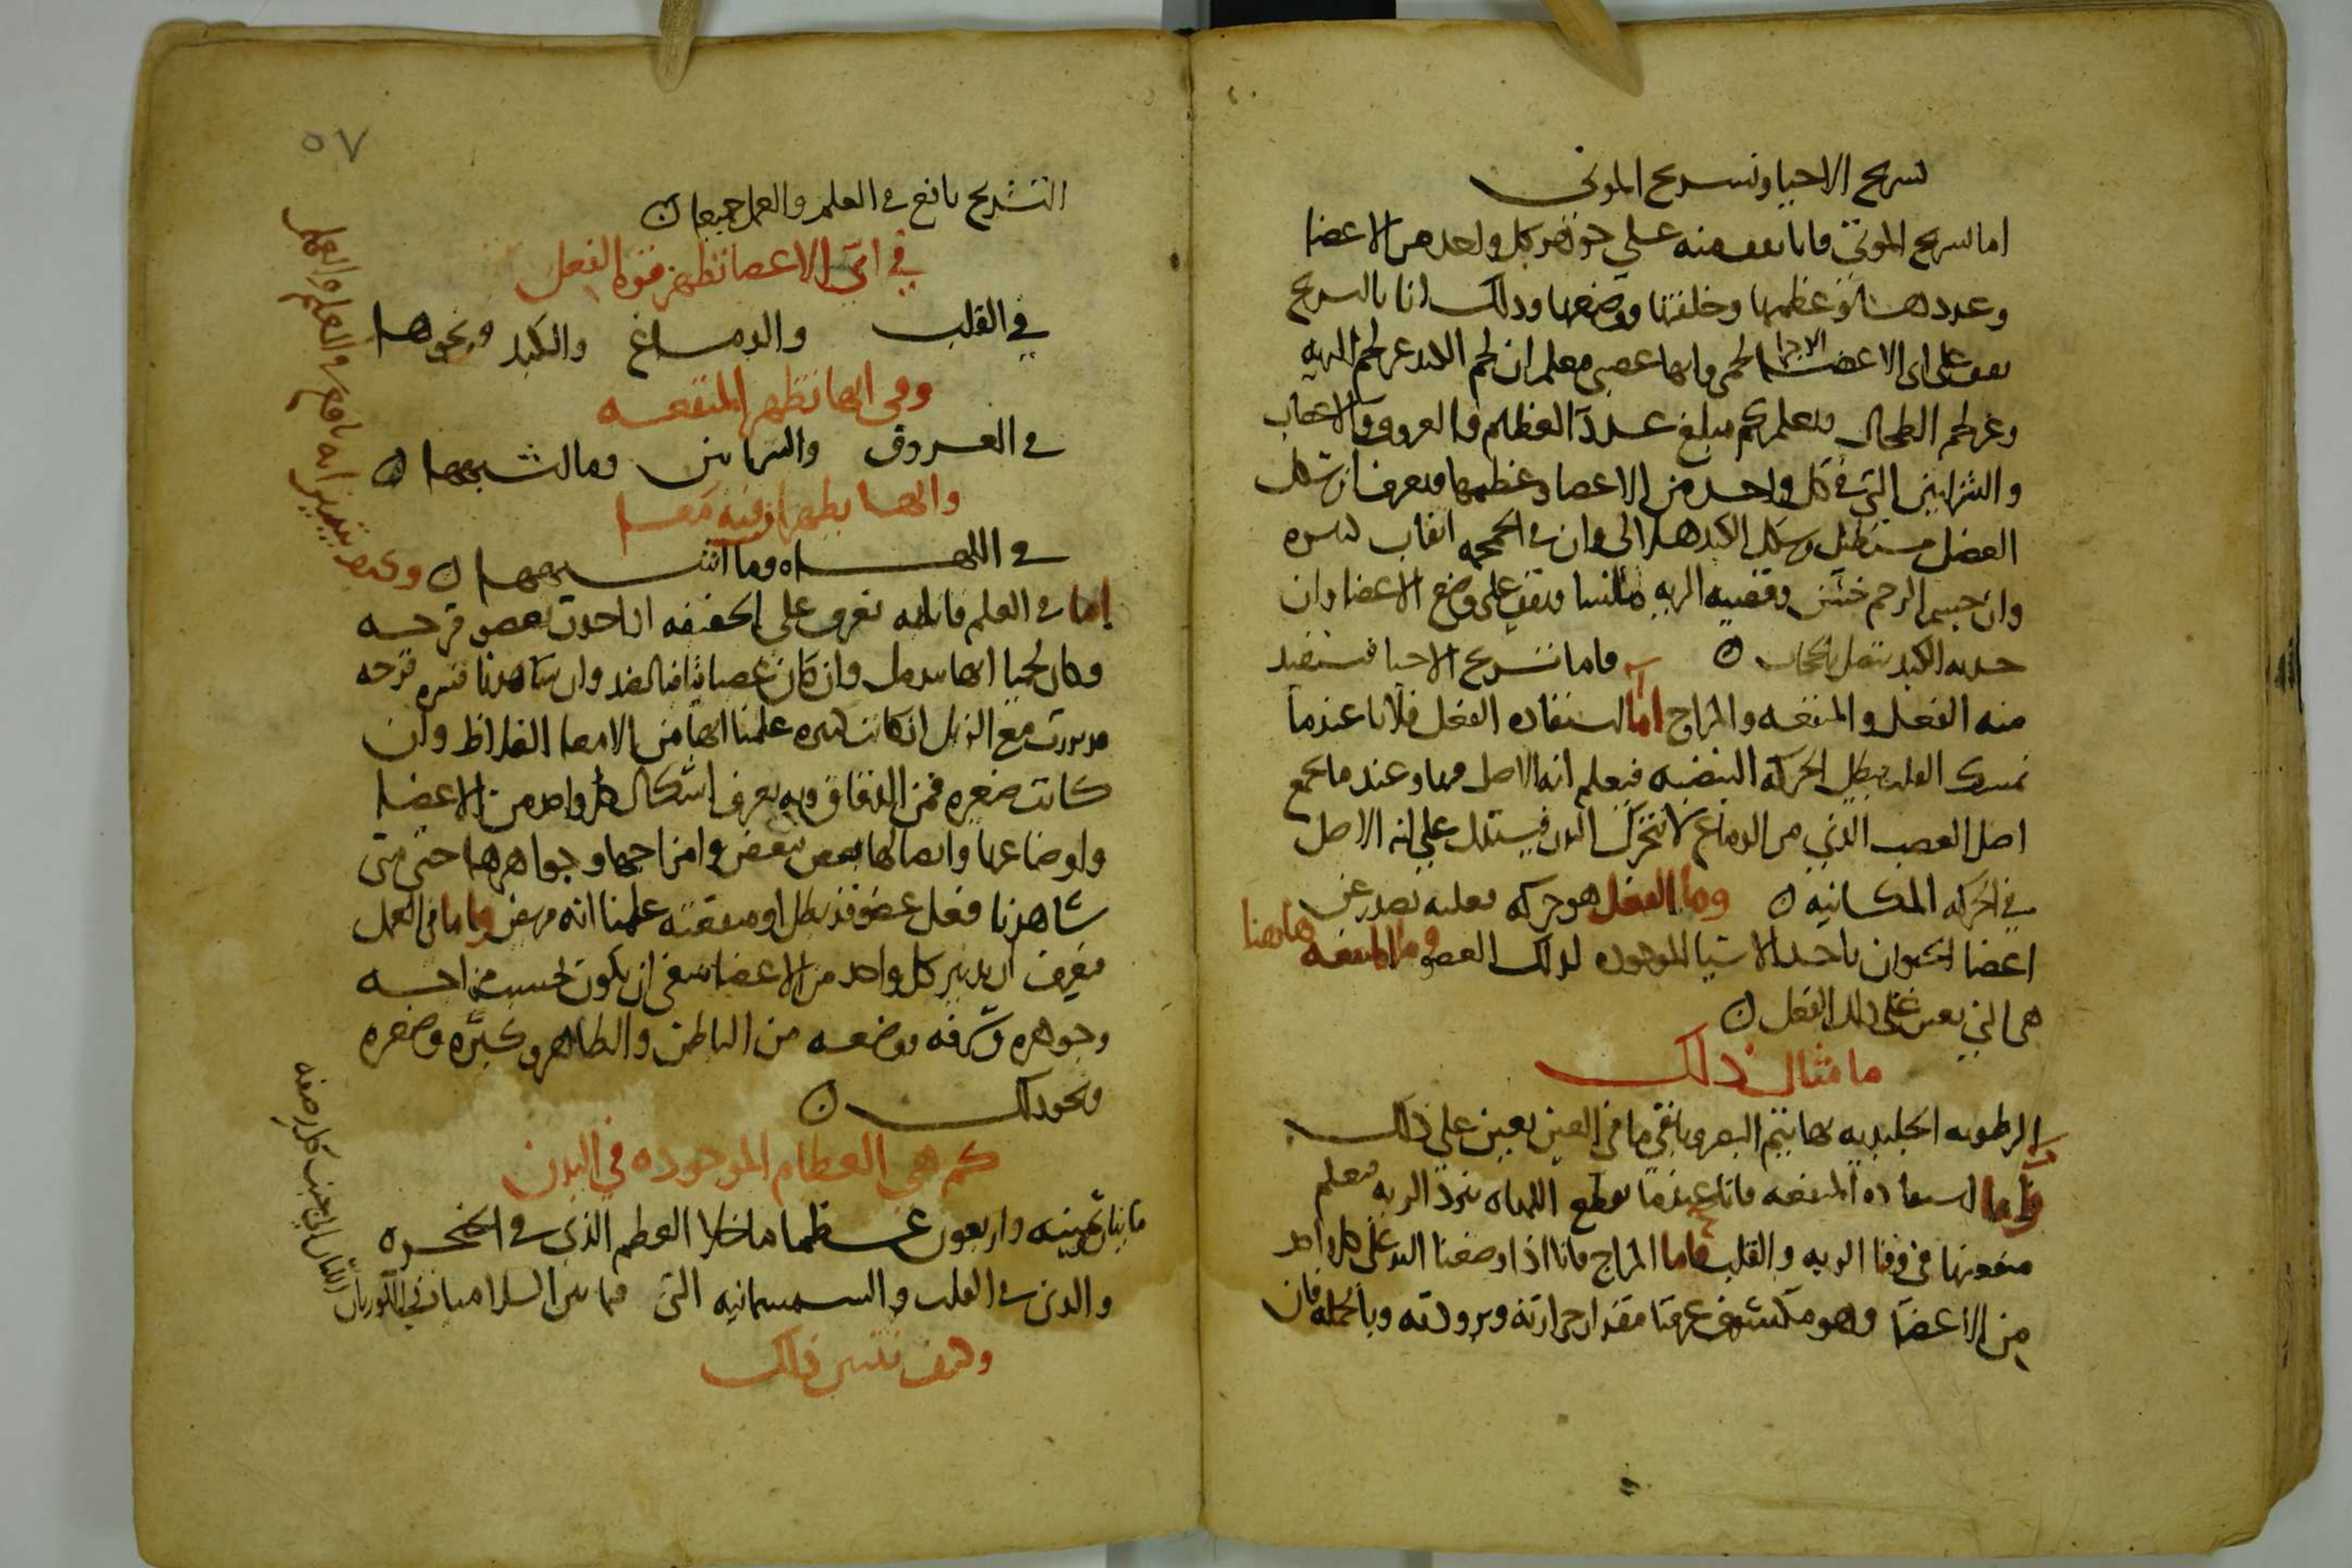 تسريح الاحيا وتسريح الموتى
اما تسريح الموتى فانا نقف منه على جوهر كل واحد من الاعضا
وعددها وعظمها وخلقتها ووضعها وذلك انا بالتسريح
نقف على اى الاعضا لحمى وايها عصبى ونعلم ان لحم الكبد غير لحم الريه
وغير لحم الطحال ونعلم كم مبلغ عدد العظام والعروق والاعصاب
والشرايين التي في كل واحد من الاعضا وعظمها ونعرف ان شكل
العضل مستطيل وشكل الكبد هلالى وان في الجمجمه اثقاب كثيره
وان جسم الرحم خشن وقصبه الريه ونقف على وضع الاعضا وان
حدبه الكبد تتصل بالحجاب ٥ فاما تشريح الاحيا فنستفيد
منه الفعل والمنفعه والمزاج اما استفاده الفعل فلانا عندما
نمسك القلب تبطل الحركه النبضيه فيعلم انه الاصل فيها وعندما نجمع
اصل العصب الذي من الدماغ لا يتحرك البدن فيستدل على انه الاصل
في الحركه المكانيه ٥ وما الفعل هو حركه فعليه تصدر عن
اعضا الحيوان باحد الاشيا الموجوده لذلك العضو وما المنفعه هاهنا
هى التي تعين على ذلك الفعل ٥
ما مثال ذلك
الرطوبه الجليديه بها يتم البصر وباقي ما في العين يعين على ذلك
واما استفاده المنفعه فانا عندما نقطع اللهاه تبرد الريه فنعلم
منفعتها في الريه والقلب فاما المزاج فانا اذا وضعنا اليد على كل واحد
من الاعضا وهو مكشوف عرفنا مقدار حرارته وبرودته وبالجمله فان
٥٧
التشريح نافع في العلم والعمل جميعا ٥
في اى الاعضا تظهر قوه الفعل
في القلب والدماغ والكبد ونحوها
وفى ايها تظهر المنفعه
في العروق والشرايين وما اشبهها ٥
وايها يظهران فيه معا
في اللهاه وما اشبهها ٥ وكيف يتبين انه نافع في العلم والعمل
اما في العلم فانا به نعرف على الحقيقه اذا حدث بعضو قرحه
وكان لحميا انها تندمل وان كان عصبانيا فبالضد وان شاهدنا قشره قرحه
قد بررت مع الزبل ان كانت كبيره علمنا انها من الامعا الغلاظ وان
كانت صغيره فمن الدقاق وبه نعرف اشكال كل واحد من الاعضا
واوضاعها واتصالها بعض ببعض وامزاجها وجواهرها حتى متى
شاهدنا فعل عضو قد بطل او منفعته علمنا انه مريض واما في العمل
فنعرف ان تدبير كل واحد من الاعضا ينبغى ان يكون بحسب مزاجه
وجوهره وشرفه ووضعه من الباطن والظاهر وكبره وصغره
ونحو ذلك ٥
كم هي العظام الموجوده في البدن
مايتان وثمنيه واربعون عظما ما خلا العظم الذي في الحنجره
والذى في القلب والسمسمانيه التى فيما بين السلاميات
وكيف تتبين ذلك